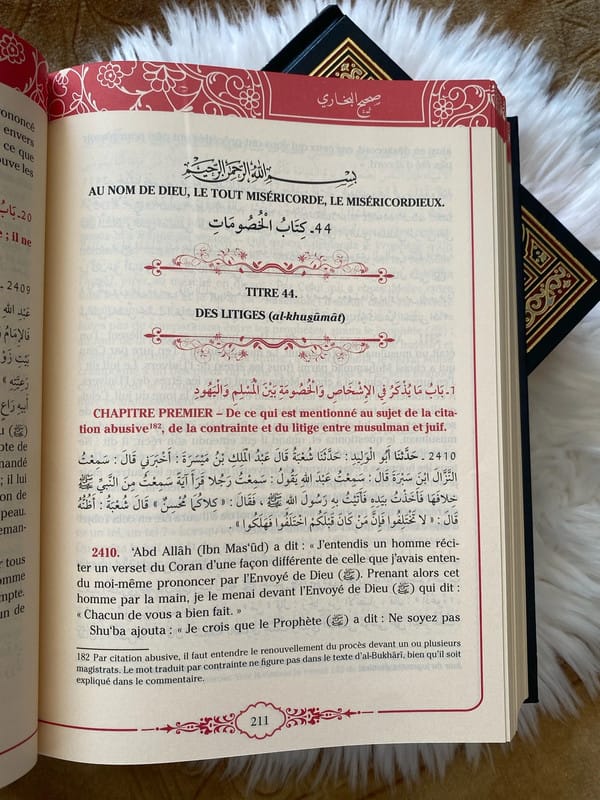 ononcé
envers
ce que
ouve les
20ـ بَابُ
e ; il ne
2409 ـ
عَبْدِ اللَّهِ
فَالإِمَامُ
بَيْتِ زَوْ
رَعِيَّتِهِ »
أَبِيهِ رَاعٍ
u (ﷺ)
ote de
mandé
; il lui
on de
peau.
eman-
r tous
omme
mpte.
un de
صحيح البخاري
بِسْمِ اللَّهِ الرَّحْمَنِ الرَّحِيمِ
AU NOM DE DIEU, LE TOUT MISÉRICORDE, LE MISÉRICORDIEUX.
44ـ كِتَابُ الْخُصُومَاتِ
TITRE 44.
DES LITIGES (al-khuṣūmāt)
1ـ بَابُ مَا يُذْكَرُ فِي الإِشْخَاصِ وَالْخُصُومَةِ بَيْنَ الْمُسْلِمِ وَالْيَهُودِ
CHAPITRE PREMIER – De ce qui est mentionné au sujet de la cita-
tion abusive182, de la contrainte et du litige entre musulman et juif.
2410 ـ حَدَّثَنَا أَبُو الْوَلِيدِ : حَدَّثَنَا شُعْبَةُ قَالَ عَبْدُ الْمَلِكِ بْنُ مَيْسَرَةَ : أَخْبَرَنِي قَالَ : سَمِعْتُ
النَّزَّالَ ابْنَ سَبْرَةَ قَالَ : سَمِعْتُ عَبْدَ اللَّهِ يَقُولُ : سَمِعْتُ رَجُلًا قَرَأَ آيَةً سَمِعْتُ مِنَ النَّبِيِّ ﷺ
خِلَافَهَا فَأَخَذْتُ بِيَدِهِ فَأَتَيْتُ بِهِ رَسُولَ اللَّهِ ﷺ ، فَقَالَ : « كِلَاكُمَا مُحْسِنٌ » قَالَ شُعْبَةُ : أَظُنُّهُ
قَالَ : « لَا تَخْتَلِفُوا فَإِنَّ مَنْ كَانَ قَبْلَكُمْ اخْتَلَفُوا فَهَلَكُوا » .
2410. ‘Abd Allāh (Ibn Mas‘ūd) a dit : « J'entendis un homme réci-
ter un verset du Coran d'une façon différente de celle que j'avais enten-
du moi-même prononcer par l'Envoyé de Dieu (ﷺ). Prenant alors cet
homme par la main, je le menai devant l'Envoyé de Dieu (ﷺ) qui dit :
« Chacun de vous a bien fait. »
Shu‘ba ajouta : « Je crois que le Prophète (ﷺ) a dit : Ne soyez pas
182 Par citation abusive, il faut entendre le renouvellement du procès devant un ou plusieurs
magistrats. Le mot traduit par contrainte ne figure pas dans le texte d'al-Bukhārī, bien qu'il soit
expliqué dans le commentaire.
211